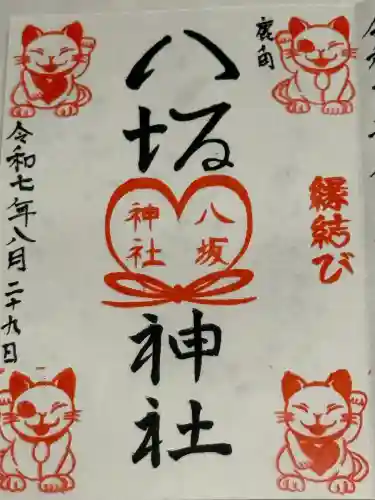 鹿角
縁結び
八坂
八坂
神社
神社
令和七年八月二十九日